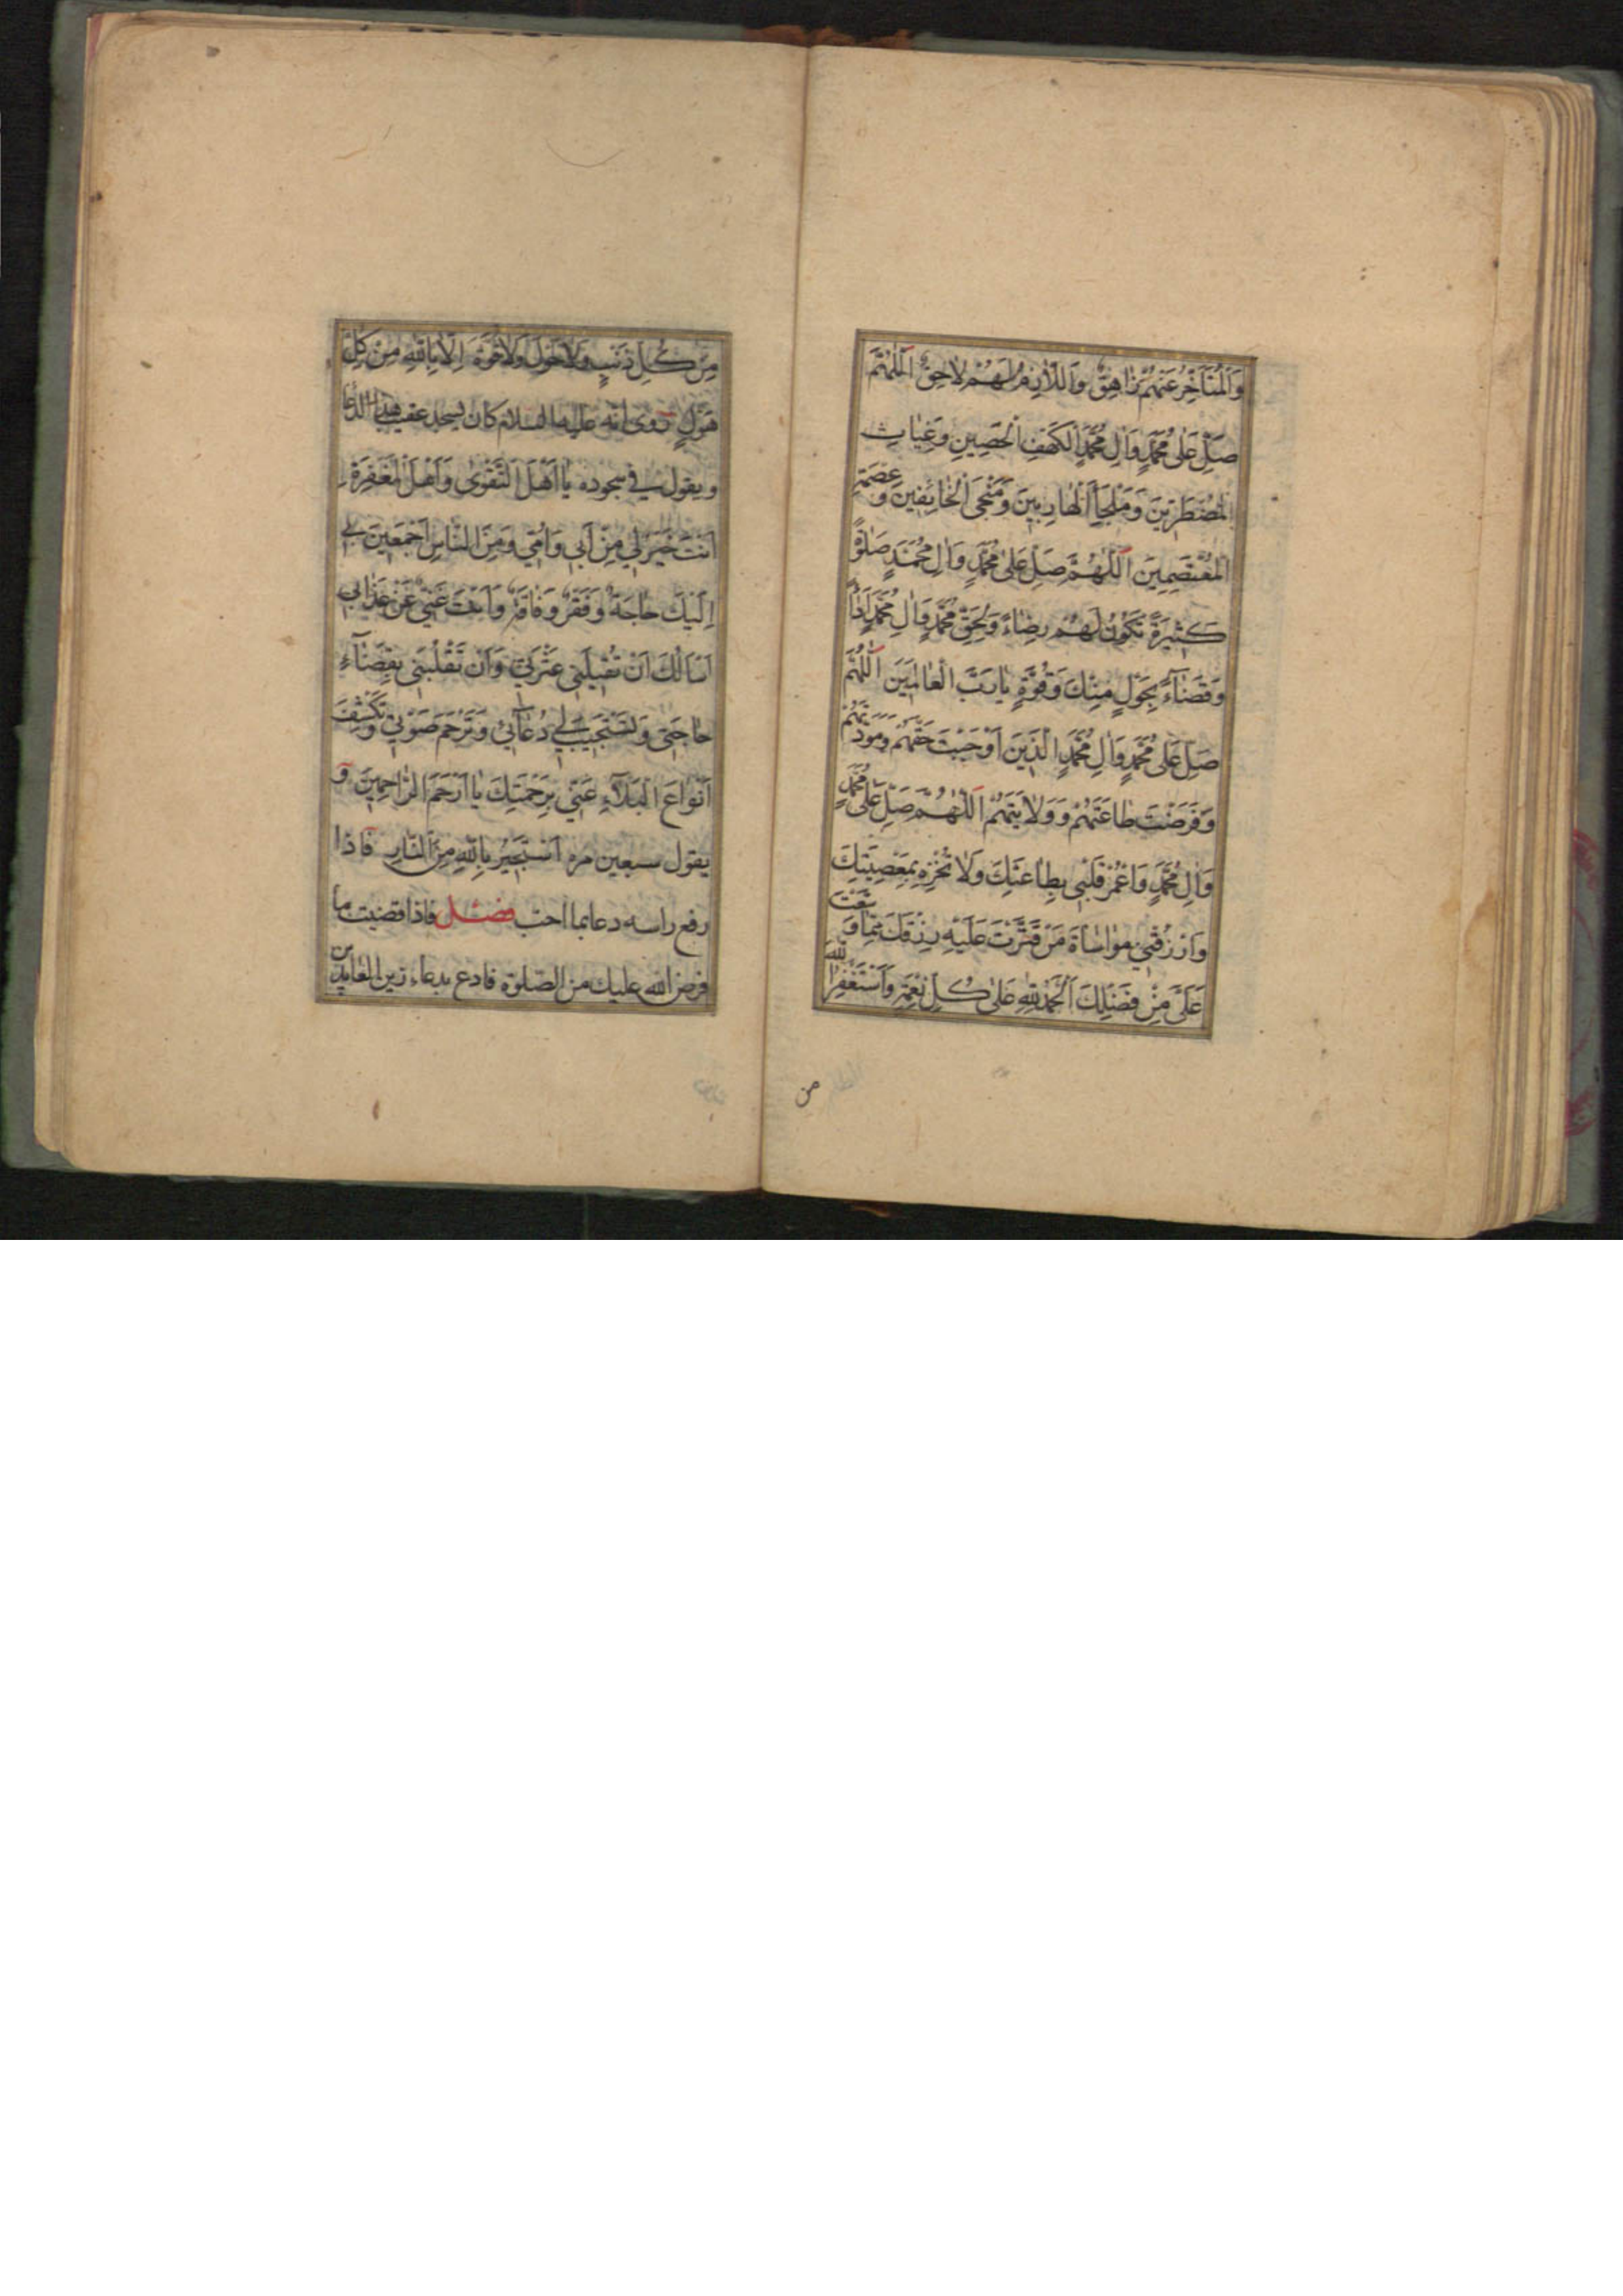 وَالْمُتَأَخِّرُ عَنْهُمْ زٰاهِقٌ وَاللّٰازِمُ لَهُمْ لٰاحِقٌ اَللّٰهُمَّ
صَلِّ عَلىٰ مُحَمَّدٍ وَاٰلِ مُحَمَّدٍ الْكَهْفِ الْحَصِينِ وَغِيٰاثِ
الْمُضْطَرِّينَ وَمَلْجَأِ الْهٰارِبِينَ وَمَنْجَى الْخٰائِفِينَ وَعِصْمَةِ
الْمُعْتَصِمِينَ اَللّٰهُمَّ صَلِّ عَلىٰ مُحَمَّدٍ وَاٰلِ مُحَمَّدٍ صَلٰوةً
كَثِيرَةً تَكُونُ لَهُمْ رِضٰاءً وَلِحَقِّ مُحَمَّدٍ وَاٰلِ مُحَمَّدٍ اَدٰاءً
وَقَضٰاءً بِحَوْلٍ مِنْكَ وَقُوَّةٍ يٰا رَبَّ الْعٰالَمِينَ اَللّٰهُمَّ
صَلِّ عَلىٰ مُحَمَّدٍ وَاٰلِ مُحَمَّدٍ الَّذِينَ اَوْجَبْتَ حَقَّهُمْ وَمَوَدَّتَهُمْ
وَفَرَضْتَ طٰاعَتَهُمْ وَوِلٰايَتَهُمْ اَللّٰهُمَّ صَلِّ عَلىٰ مُحَمَّدٍ
وَاٰلِ مُحَمَّدٍ وَاعْمُرْ قَلْبِى بِطٰاعَتِكَ وَلٰا تُخْزِهِ بِمَعْصِيَتِكَ
وَارْزُقْنِي مُوٰاسٰاةَ مَنْ قَتَّرْتَ عَلَيْهِ رِزْقَكَ مِمّٰا وَسَّعْتَ
عَلَىَّ مِنْ فَضْلِكَ اَلْحَمْدُ لِلّٰهِ عَلىٰ كُلِّ نِعْمَةٍ وَاَسْتَغْفِرُ اللّٰهَ
من
مِنْ كُلِّ ذَنْبٍ وَلٰا حَوْلَ وَلٰا قُوَّةَ اِلّٰا بِاللّٰهِ مِنْ كُلِّ
هَوْلٍ روى انه عليه السلام كان يسجد عقيب هذا الدعا
ويقول في سجوده يٰا اَهْلَ التَّقْوىٰ وَاَهْلَ الْمَغْفِرَةِ
اَنْتَ خَيْرٌ لِي مِنْ اَبِي وَاُمِّي وَمِنَ النّٰاسِ اَجْمَعِينَ بِي
اِلَيْكَ حٰاجَةٌ وَفَقْرٌ وَفٰاقَةٌ وَاَنْتَ غَنِيٌّ عَنْ عَذٰابِي
اَسْأَلُكَ اَنْ تُقِيلَنِى عَثْرَتِي وَاَنْ تَقْلِبَنِى بِقَضٰاءِ
حٰاجَتِى وَتَسْتَجِيبَ لِي دُعٰائِي وَتَرْحَمَ صَوْتِي وَتَكْشِفَ
اَنْوٰاعَ الْبَلٰاءِ عَنِّي بِرَحْمَتِكَ يٰا اَرْحَمَ الرّٰاحِمِينَ و
يقول سبعين مره اَسْتَجِيرُ بِاللّٰهِ مِنَ النّٰارِ فاذا
رفع راسه دعا بما احب فصل فاذا قضيت ما
فرض الله عليك من الصلوة فادع بدعاء زين العابدين